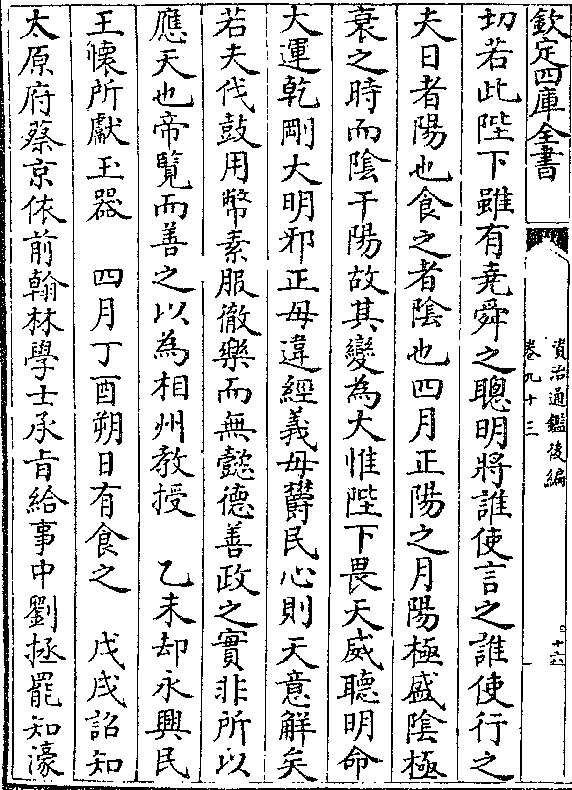 欽定四庫全書
資治通鑑後編
卷九十三
十六
切若此陛下雖有堯舜之聰明將誰使言之誰使行之
夫日者陽也食之者陰也四月正陽之月陽極盛陰極
衰之時而陰干陽故其變為大惟陛下畏天威聽明命
大運乾剛大明邪正毋違經義毋鬱民心則天意解矣
若夫伐鼓用幣素服徹樂而無懿德善政之實非所以
應天也帝覽而善之以為相州教授　乙未却永興民
王懷所獻玉器　四月丁酉朔日有食之　戊戌詔知
太原府蔡京依前翰林學士承旨給事中劉拯罷知濠